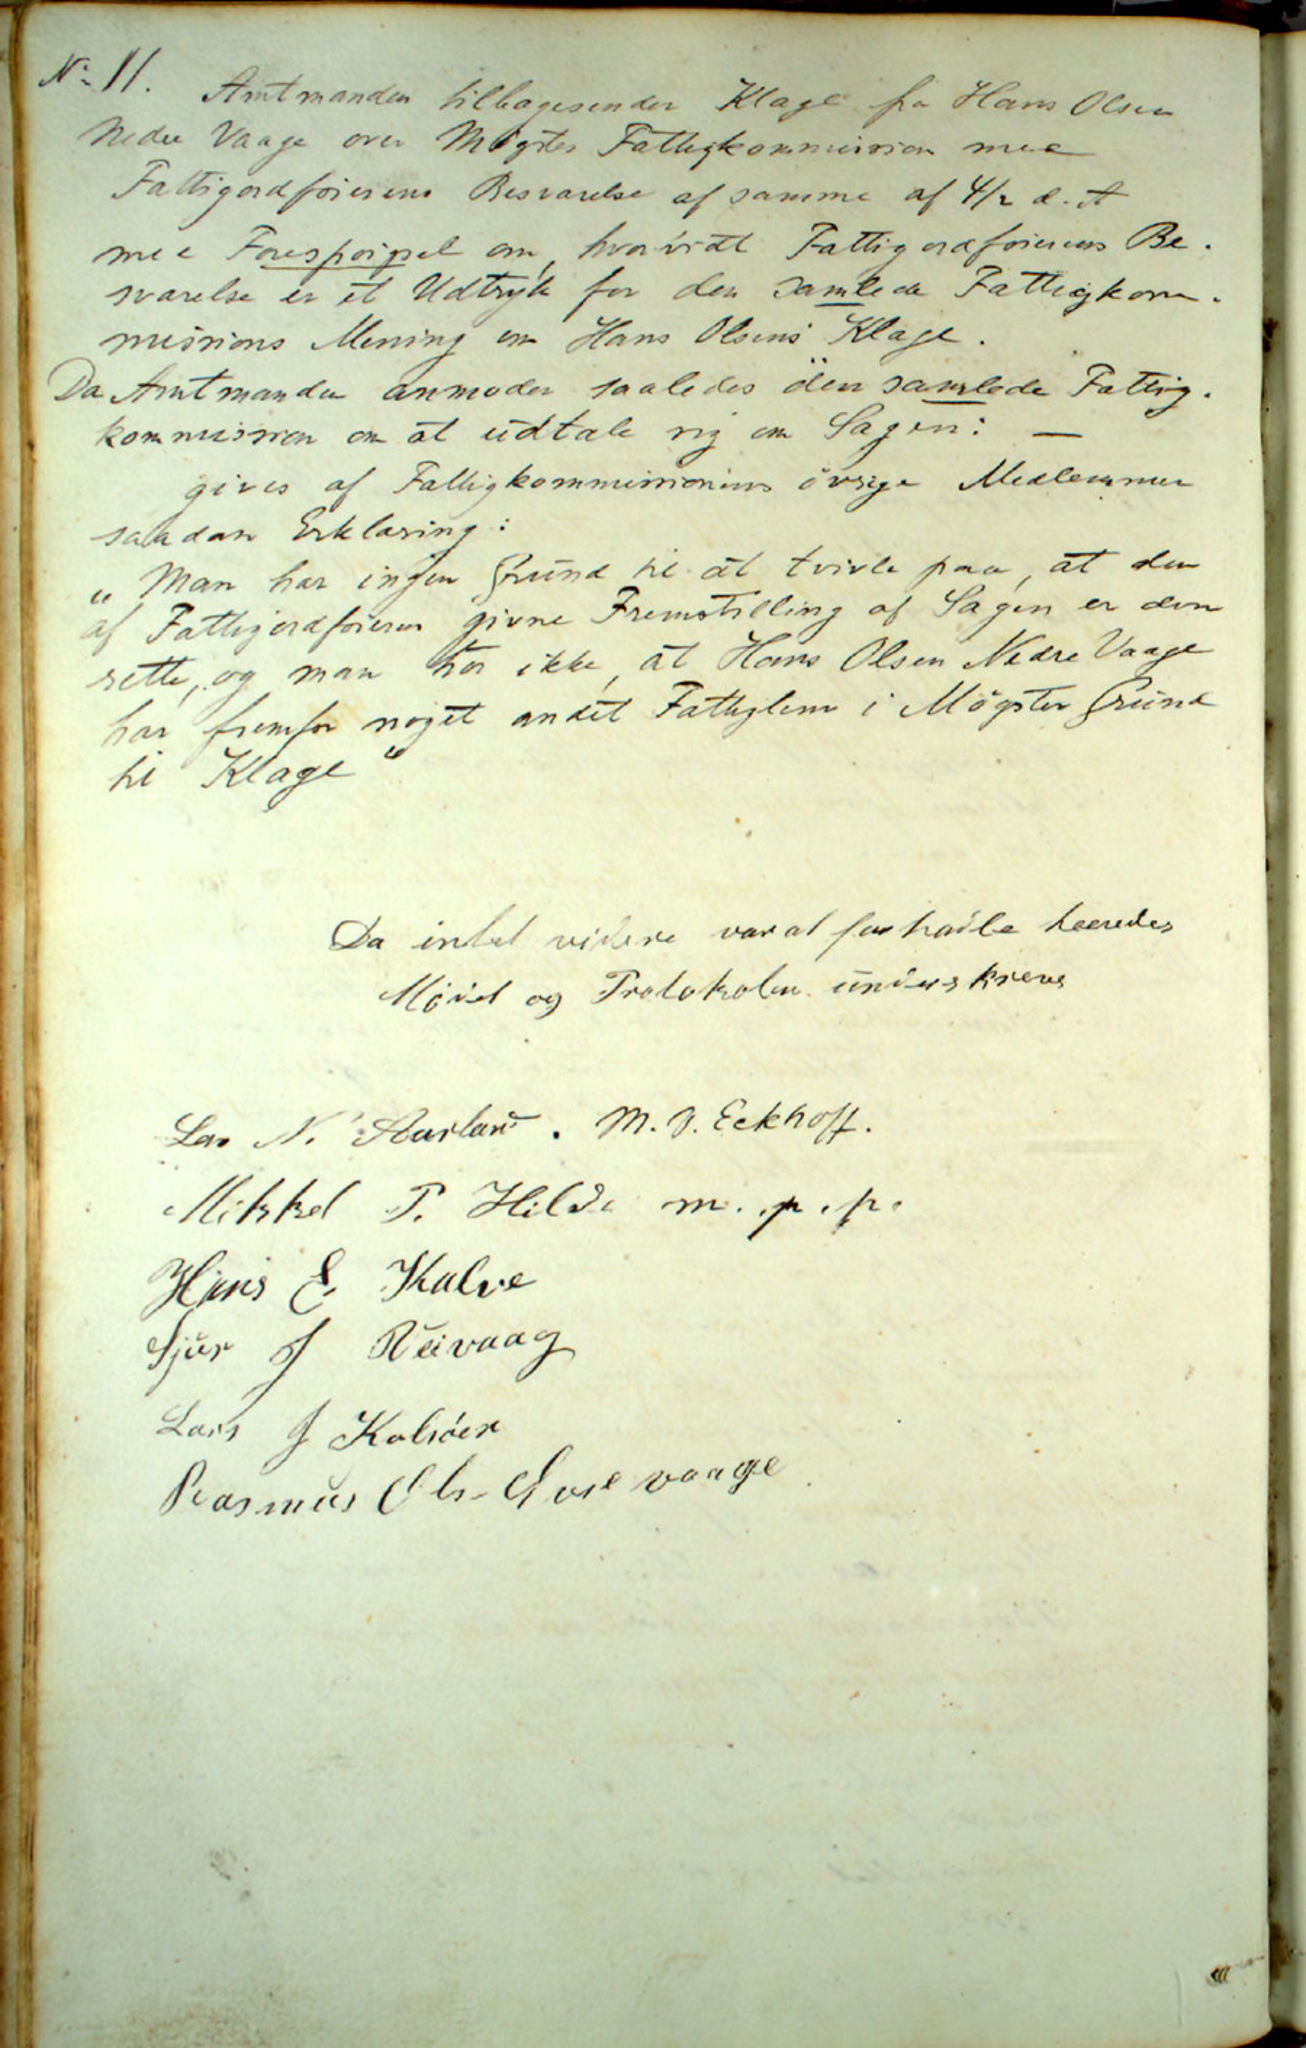 No 11. Amtmanden tilbagesender Klage fra Hans Olsen
Nedre Vaage over Møgster Fattigkommission med
Fattigordførerens Besvarelse af samme af 4/2 d. A
med Forespørgsel om, hvorvidt Fattigordførerens Be-
svarelse er et Udtryk for den samlede Fattigkom-
missions Mening om Hans Olsens Klage.
Da Amtmanden anmoder saaledes den samlede Fattig-
kommission om at udtale sig om Sagen: —
gives af Fattigkommissionens øvrige Medlemmer
saadan Erklæring:
„Man har ingen Grund til at tvivle paa, at den
af Fattigordføreren givne Fremstilling af Sagen er den
rette, og man tror ikke, at Hans Olsen Nedre Vaage
har fremfor noget andet Fattiglem i Møgster Grund
til Klage“
Da intet videre var at forhandle hævedes
Mødet og Protokolen underskreves
Lars N. Aarland. M. J. Eckhoff.
Mikkel P. Hilde m. p. p.
Hans E. Kalve
Sjur J Reivaag
Lars J Kalvøen
Rasmus Ols.